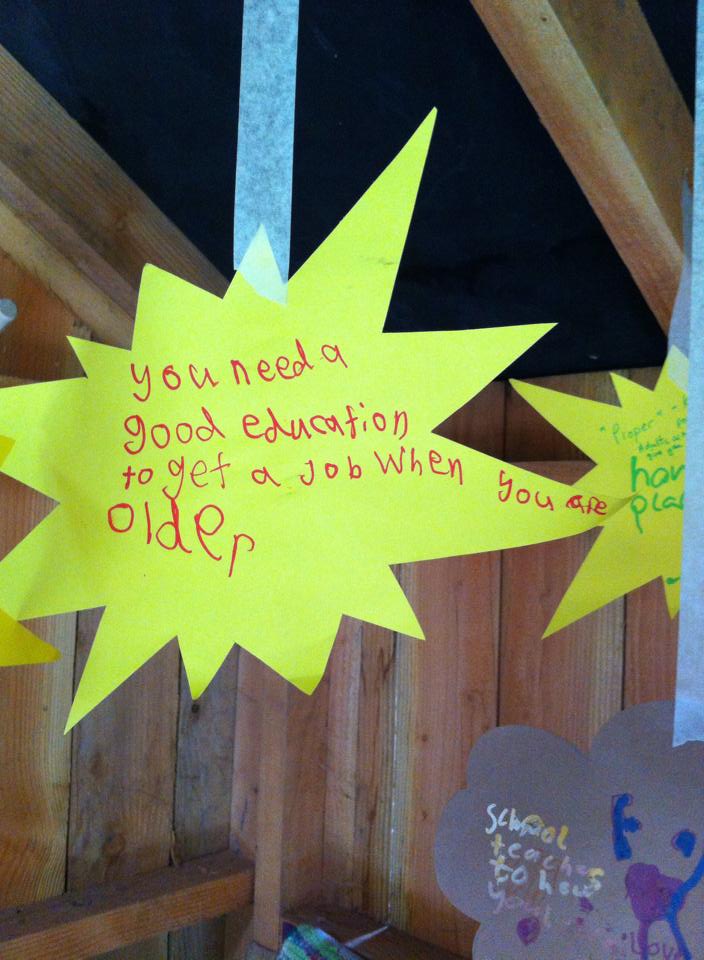 you need a
good education
to get a job when you are
older
"Proper"
School
teache
to
Love